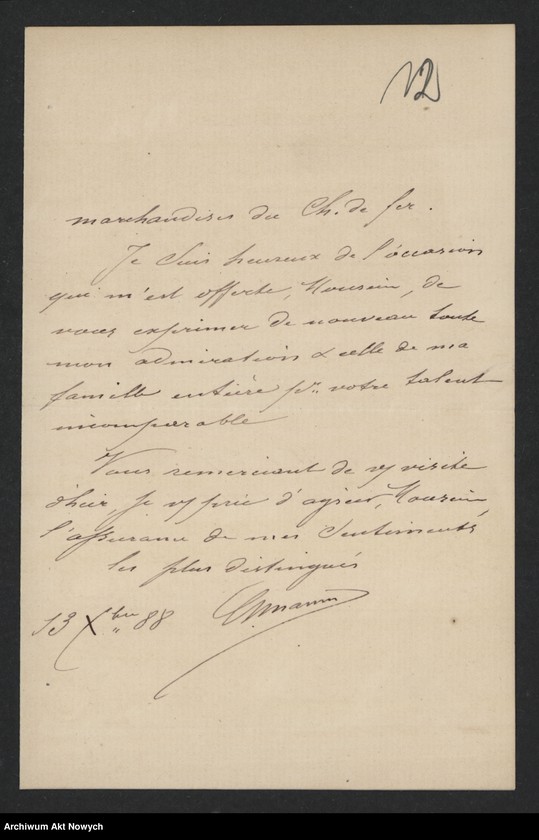 12
marchandises du Ch. de fer.
Je suis heureux de l'occasion
qui m'est offerte, Monsieur, de
vous exprimer de nouveau toute
mon admiration & celle de ma
famille entière pr. votre talent
incomparable
Vous remerciant de v/ visite
d'hier, je v/ prie d'agréer, Monsieur
l'assurance de mes sentiments
les plus distingués
13 Xbre 88
Archiwum Akt Nowych